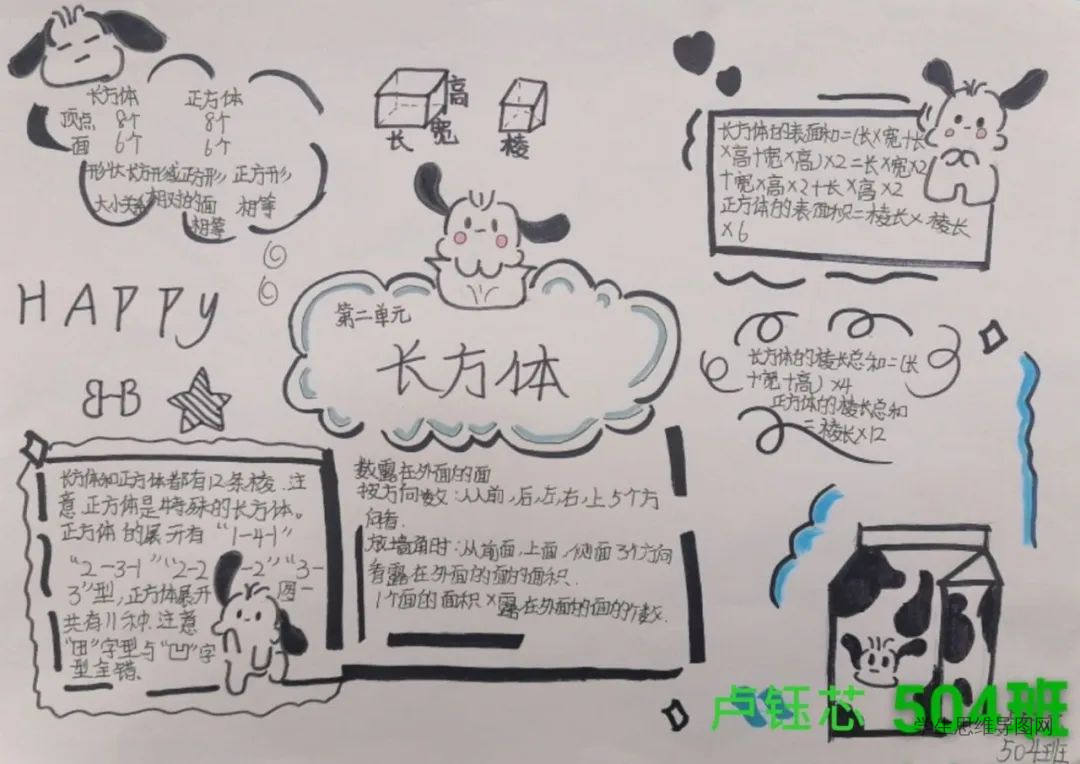 长方体 正方体
顶点 8个 8个
面 6个 6个
形状 长方形或正方形 正方形
大小关系 相对的面相等 相等
长
宽
高
棱
长方体的表面和=(长×宽+长
×高+宽×高)×2=长×宽×2
+宽×高×2+长×高×2
正方体的表面积=棱长×棱长
×6
HAPPY
第二单元
长方体
长方体的棱长总和=(长
+宽+高)×4
正方体的棱长总和
=棱长×12
长方体和正方体都有12条棱.注
意正方体是特殊的长方体。
正方体的展开有“1-4-1”
“2-3-1”“2-2-2”“3-
3”型,正方体展开图一
共有11种.注意
“田”字型与“凹”字
型全错.
数露在外面的面
按方向数:从前,后,左,右,上5个方
向看.
放墙角时:从前面,上面,侧面3个方向
看露在外面的面的面积.
1个面的面积×露在外面的面的个数.
卢钰芯 504班
学生思维导图网
504班